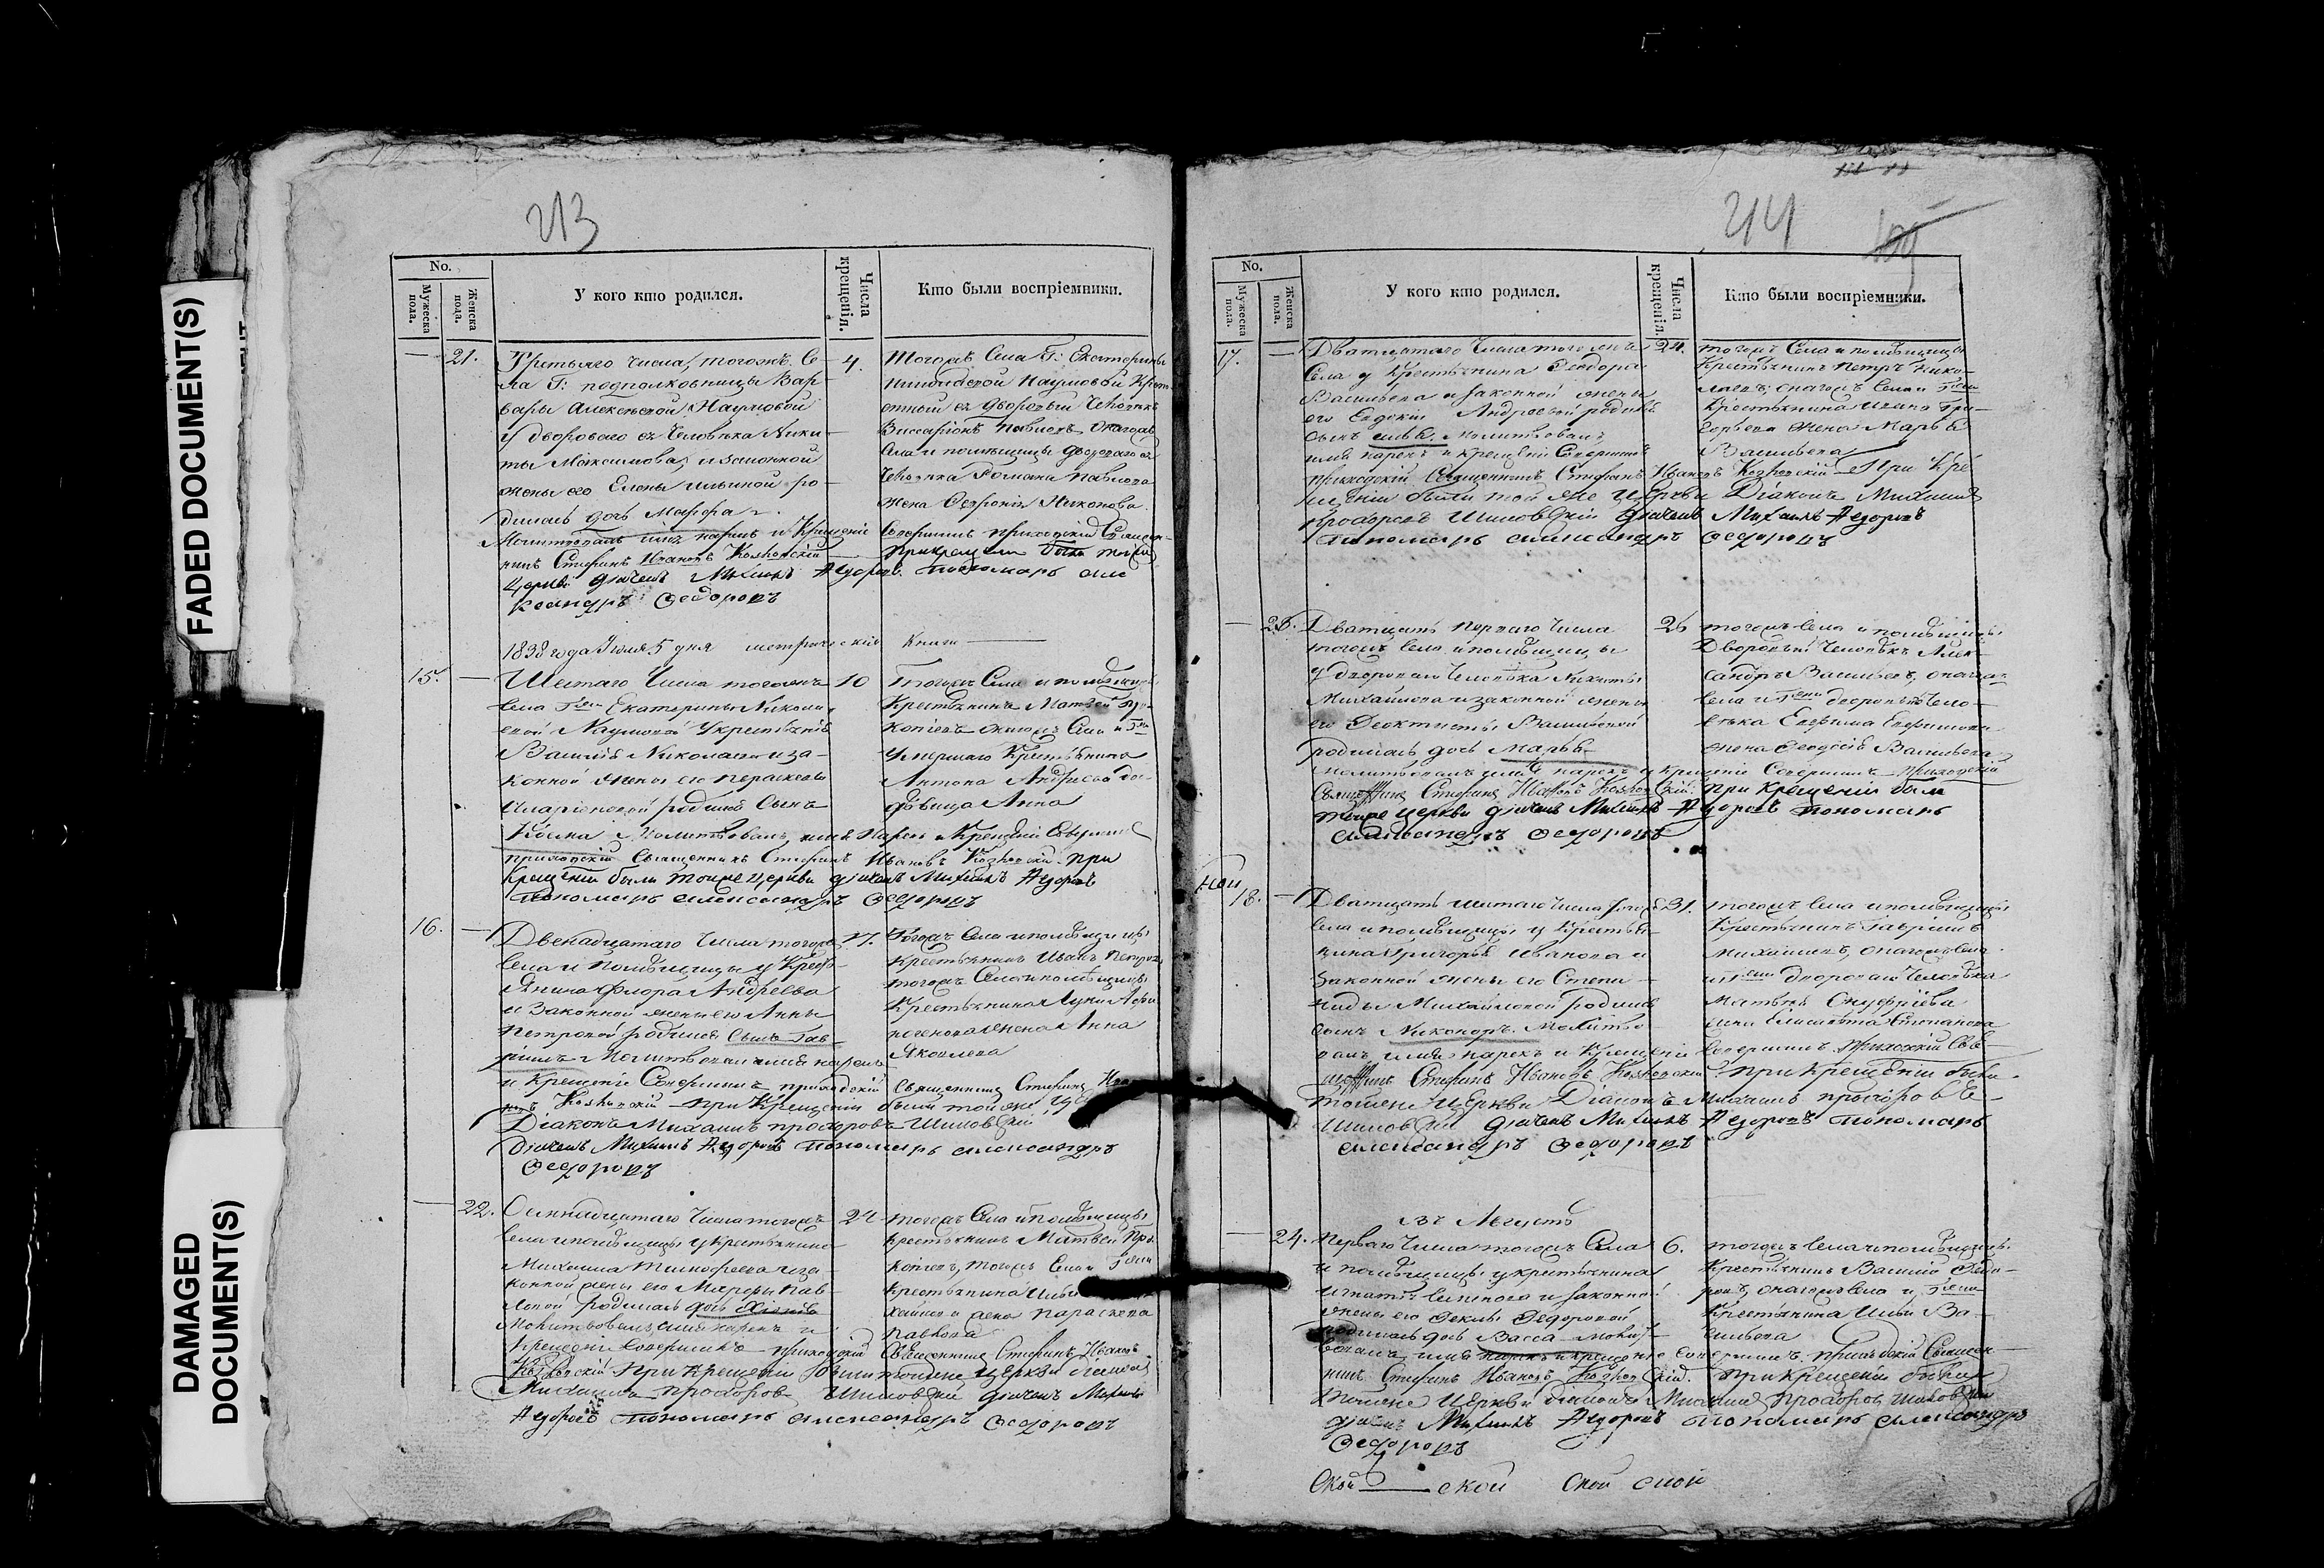 FADED DOCUMENT(S)
DAMAGED
DOCUMENT(S)
213
No.
Мужеска пола.
Женска пола.
У кого кто родился.
Числа крещенія.
Кто были воспріемники.
21.
Третьяго числа, тогожъ Се-
ла Г: подполковницы Вар-
вары Алексеевской Наумовой
у двороваго ея человѣка Ники-
ты Максимова, и законной
жены его Елены Ильиной ро-
дилась дочь Марѳа
Молитвовалъ имя нарекъ и крещеніе
никъ Стефанъ Ивановъ Кожевскій
Церкви дьячекъ Михаилъ Ѳедоровъ пономарь Але
ксандръ Ѳедоровъ
4.
Тогожъ Села Г: Екатерины
Николаевой Наумовой Крѣп
остный ея дворовый человѣкъ
Виссаріонъ Павловъ Онагожъ
Села и помѣщицы двороваго ея
человѣка Романа Павлова
жена Ефросинія Никонова
Совершилъ приходскій Священ-
При крещеніи были той же
1838 года Іюля 5 дня метрической Книги
15.
Шестаго Числа тогожъ
Села Г-жи Екатерины Никола
евой Наумовой у крестьянина
Василія Николаева и за-
конной жены его Парасковьи
Иларіоновой родился Сынъ
Косма Молитвовалъ, имя нарекъ и Крещеніе Совершилъ
приходскій Священникъ Стефанъ Ивановъ Кожевскій. При
Крещеніи были тойже церкви дьячекъ Михаилъ Ѳедоровъ
пономарь Александръ Ѳедоровъ
10
Тогожъ Села и помѣщицы
Крестьянинъ Матвей Про-
копіевъ онагожъ Села и Г-жи
умершаго Крестьянина
Антона Андреева до-
дѣвица Анна
16.
Двенадцатаго Числа тогожъ
Села и помѣщицы у Кресть-
янина Флора Андреева
и Законной жены его Анны
Петровой родился Сынъ Гав-
ріилъ Молитвовалъ имя нарекъ
и Крещеніе Совершилъ приходскій Священникъ Стефанъ Ива
новъ Кожевскій При Крещеніи были той же Це
Діаконъ Михаилъ Прохоровъ Шиловскій
Дьячекъ Михаилъ Ѳедоровъ пономарь Александръ
Ѳедоровъ
17.
Тогожъ Села и помѣщицы
Крестьянинъ Иванъ Петровъ
тогожъ Села и помѣщицы
Крестьянина Луки
жена Анна
Яковлева
22.
Осмнадцатаго Числа тогожъ
Села и помѣщицы у крестьянина
Михаила Тимофеева и за-
конной жены его Марѳы Пав-
ловой родилась дочь
Молитвовалъ, имя нарекъ и
Крещеніе Совершилъ приходскій Священникъ Стефанъ Иванов
Кожевскій При Крещеніи были тойже церкви діаконъ
Михаилъ Прохоровъ Шиловскій дьячекъ Михаилъ
Ѳедоровъ пономарь Александръ Ѳедоровъ
24
тогожъ Села и помѣщицы
крестьянинъ Матвей Про-
копіевъ, тогожъ Села и Г-жи
Крестьянина
жена Параскева
Павлова
244
No.
Мужеска пола.
Женска пола.
У кого кто родился.
Числа крещенія.
Кто были воспріемники.
17.
Дватцатаго Числа тогожъ
Села у Крестьянина Ѳеодора
Васильева и законной жены
его Евдокіи Андреевой родился
сынъ Илья. Молитвовалъ,
имя нарекъ и крещеніе Совершилъ
приходскій Священникъ Стефанъ Ивановъ Кожевскій При Кре
щеніи были той же Церкви Діаконъ Михаилъ
Прохоровъ Шиловскій дьячекъ Михаилъ Ѳедоровъ
пономарь Александръ Ѳедоровъ
24.
тогожъ Села и помѣщицы
Крестьянинъ Петръ Нико-
лаевъ; онагожъ Села и Г-жи
Крестьянина Ивана Гри-
горьева жена Марья
Васильева
23.
Дватцать перваго Числа
тогожъ Села, и помѣщицы
у двороваго Человѣка Никиты
Михайлова и законной жены
его Ѳеоктисты Васильевой
родилась дочь Марья
молитвовалъ имя нарекъ и Крещеніе Совершилъ приходскій
Священникъ Стефанъ Ивановъ Кожевскій. При Крещеніи были
тойже церкви дьячекъ Михаилъ Ѳедоровъ пономарь
Александръ Ѳедоровъ
26
тогожъ Села и помѣщицы
Дворовый Человѣкъ Алек-
сандръ Васильевъ, онагожъ
Села и Г-жи двороваго Чело-
вѣка Ефима Ефимова
жена Ѳеодосія Васильева
18.
Дватцать шестаго Числа тогожъ
Села и помѣщицы у Крестья-
нина Григорія Иванова и
Законной жены его Степа-
ниды Михайловой родился
сынъ Никоноръ. Молитво-
валъ, имя нарекъ и Крещеніе Совершилъ Приходскій Свя-
щенникъ Стефанъ Ивановъ Кожевскій при Крещеніи были
тойже Церкви Діаконъ Михаилъ Прохоровъ
Шиловскій дьячекъ Михаилъ Ѳедоровъ пономарь
Александръ Ѳедоровъ
31.
тогожъ Села и помѣщицы
Крестьянинъ Гавріилъ
Михайловъ, онагожъ Села
и Г-жи двороваго Человѣка
Онуфріева
жена Елисавета Степанова
въ Августѣ
24.
Перваго Числа тогожъ Села
и помѣщицы у крестьянина
Игнатія и законной
жены его Ѳеклы Ѳедоровой
родилась дочь Васса Молит-
вовалъ имя нарекъ и крещеніе совершилъ приходскій Священ-
никъ Стефанъ Ивановъ Кожевскій. При Крещеніи были
тойже Церкви діаконъ Михаилъ Прохоровъ Шиловскій
дьячекъ Михаилъ Ѳедоровъ пономарь Александръ
Ѳедоровъ
6.
тогожъ Села и помѣщицы
Крестьянинъ Василій Ѳедо-
ровъ, онагожъ Села и Г-жи
Крестьянина Ильи Ва-
сильева
Ской ской Ской ской